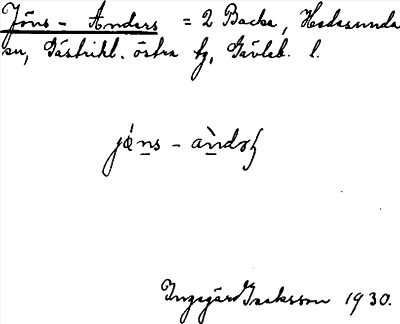 Jöns - Anders = 2 Backa, Hedesunda
sn, Gästrikl. östra tg, Gävleb. l.
jö́ns - àndəʂ
Ingegärd Isaksson 1930.